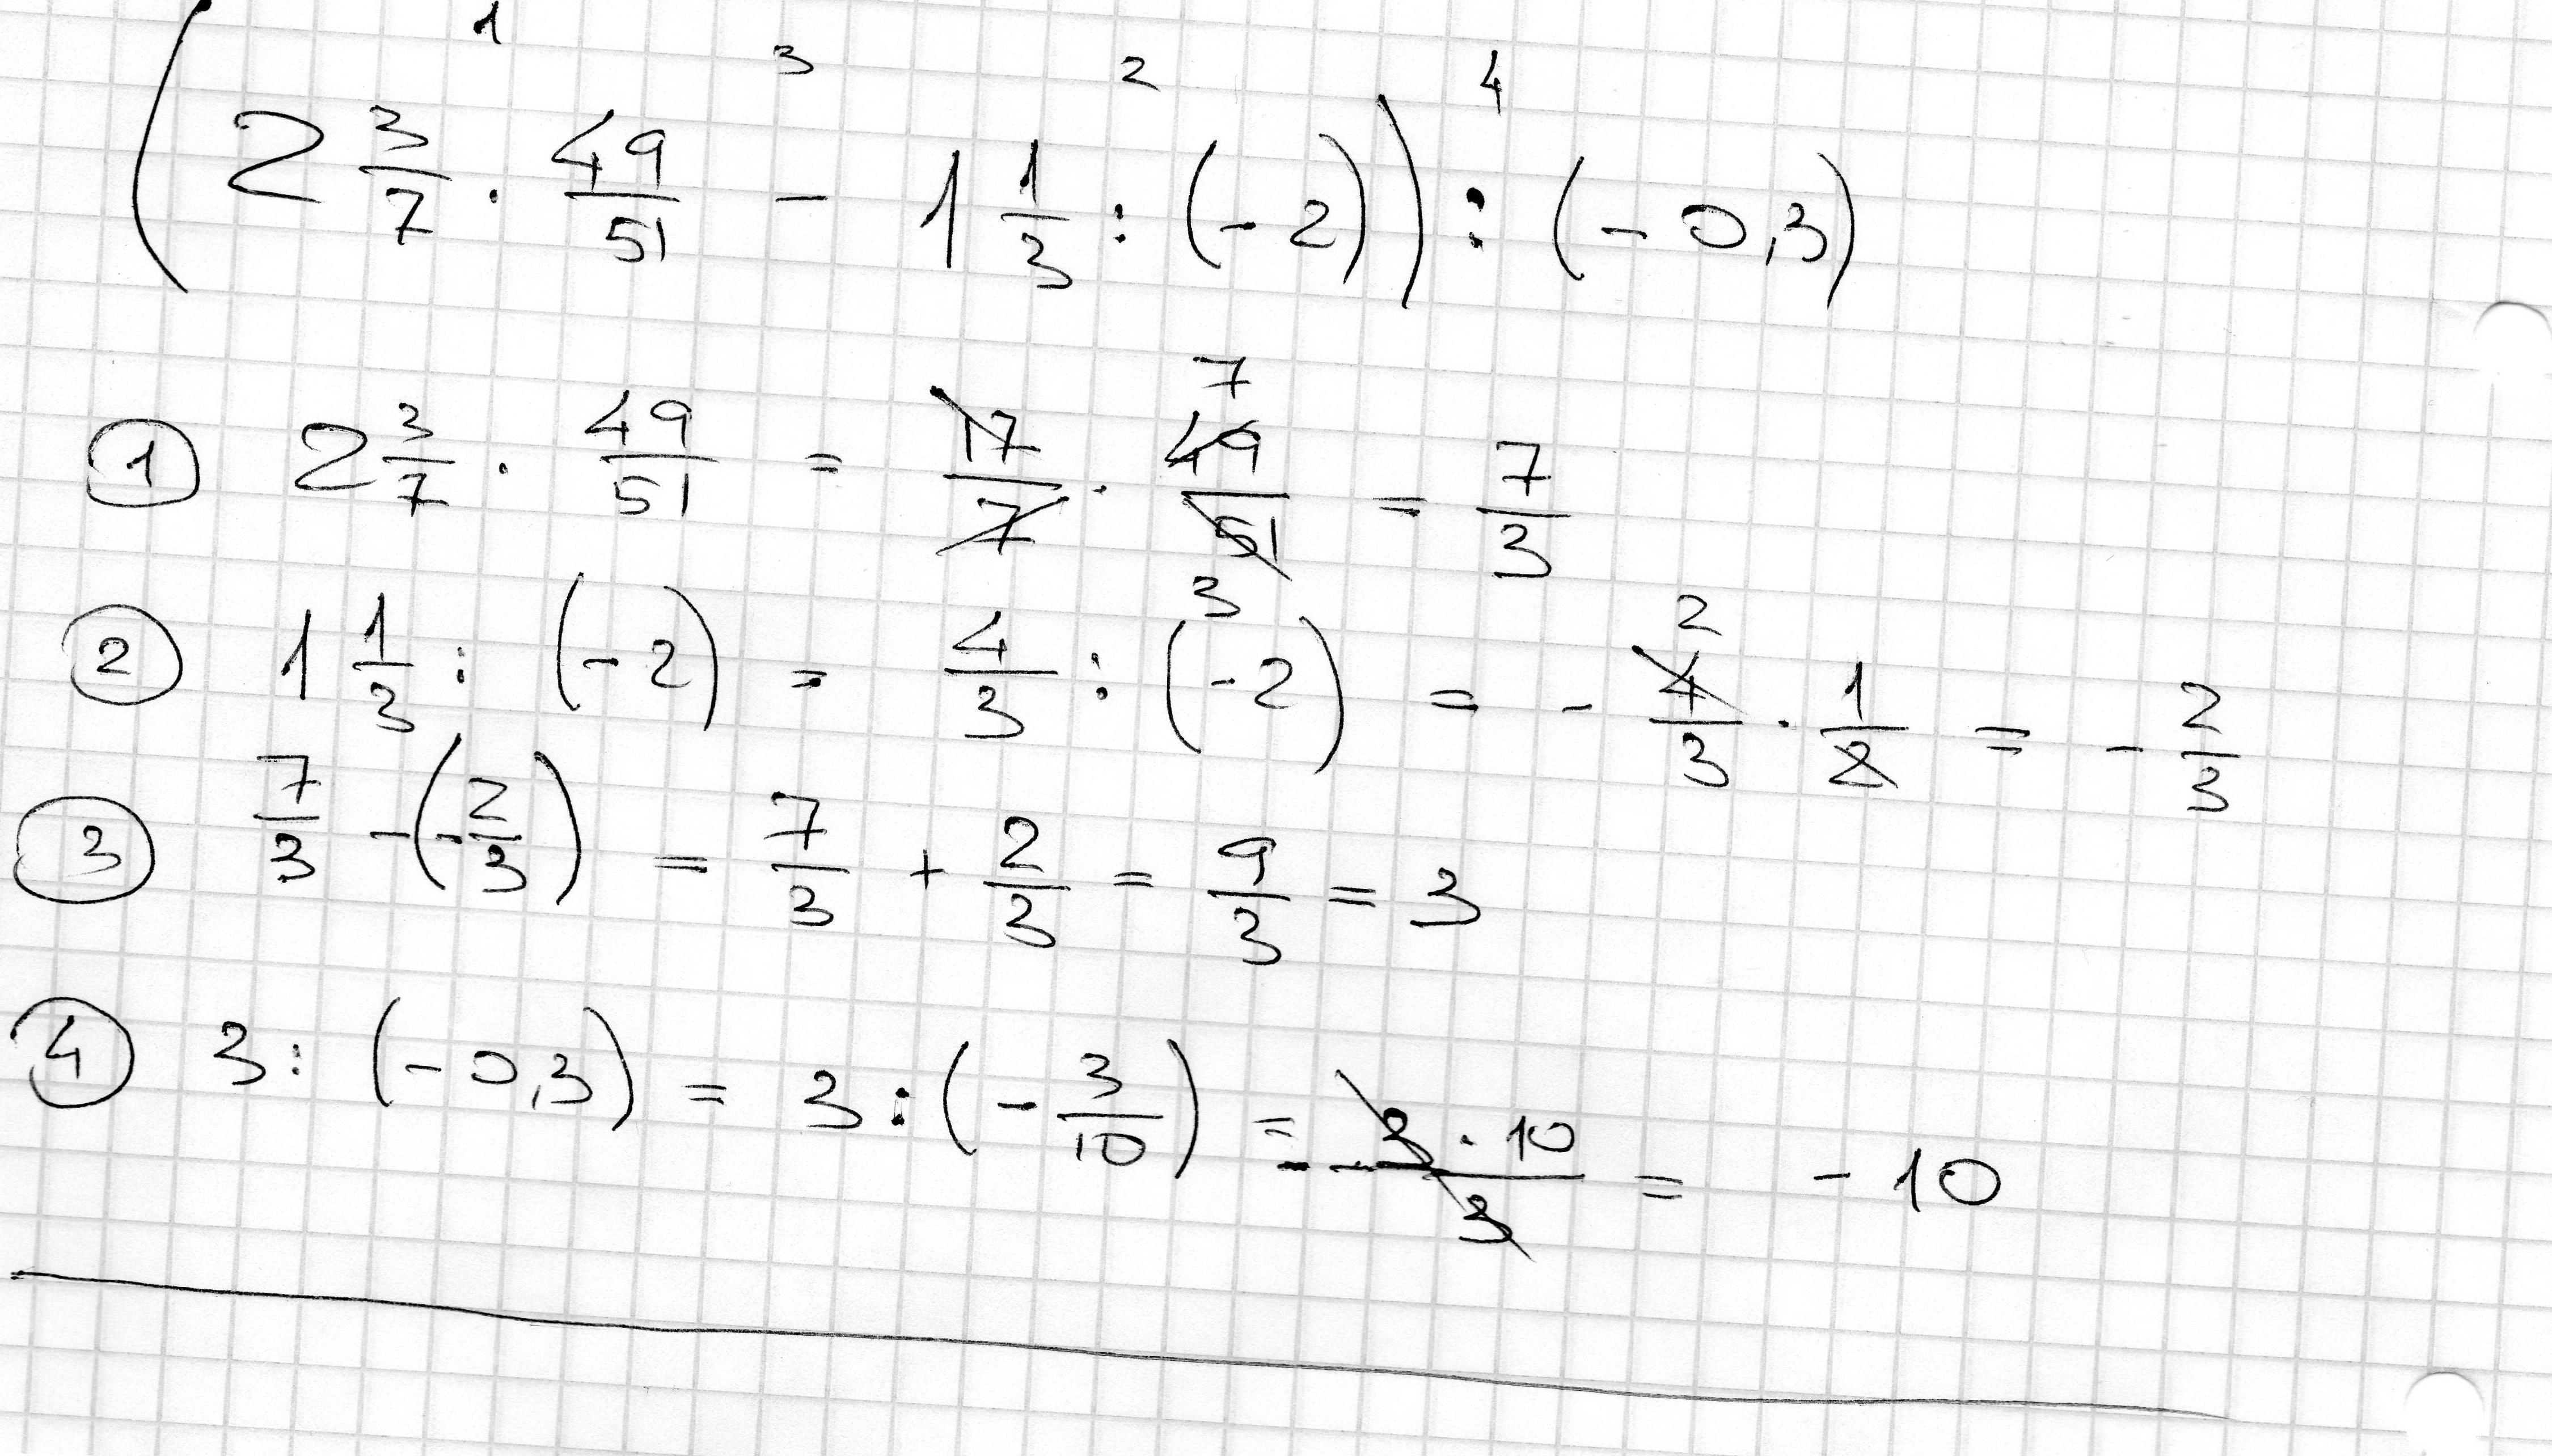 1 3 2 4
(2 3/7 · 49/51 − 1 1/3 : (−2)) : (−0,3)
① 2 3/7 · 49/51 = 17/7 · 49/51 = 7/3
7
3
② 1 1/3 : (−2) = 4/3 : (−2) = − 4/3 · 1/2 = − 2/3
2
③ 7/3 − (−2/3) = 7/3 + 2/3 = 9/3 = 3
④ 3 : (−0,3) = 3 : (−3/10) = − 3 · 10/3 = −10